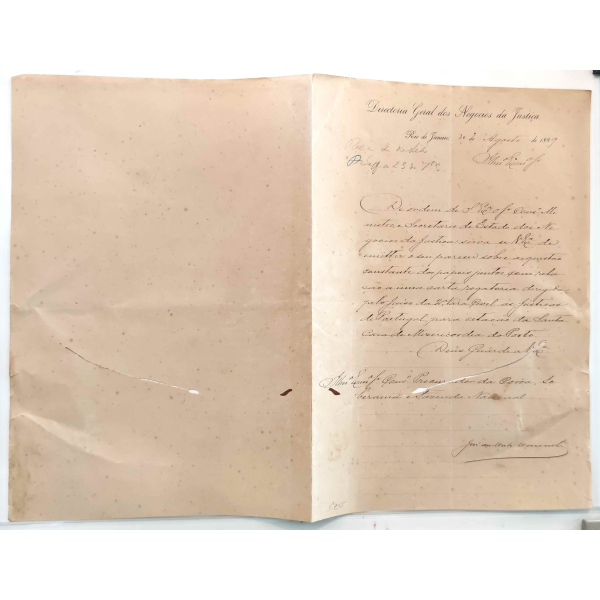 Directoria Geral dos Negocios da Justiça
Rio de Janeiro, de Agosto de 1889
Illmo Exmo Sr
De ordem de S. Exa o Sr Consº Mi-
nistro e Secretario de Estado dos Ne-
gocios da Justiça sirva-se V. Exa de
emittir o seu parecer sobre a questão
constante dos papeis juntos com rela-
ção a uma carta rogatoria dirigida
pelo Juizo da Vara Civel ás Justiças
de Portugal para citação da Santa
Casa da Misericordia do Porto.
Deus Guarde a V. Exa
Illmo Exmo Sr Consº Procurador da Corôa, So-
berania e Fazenda Nacional